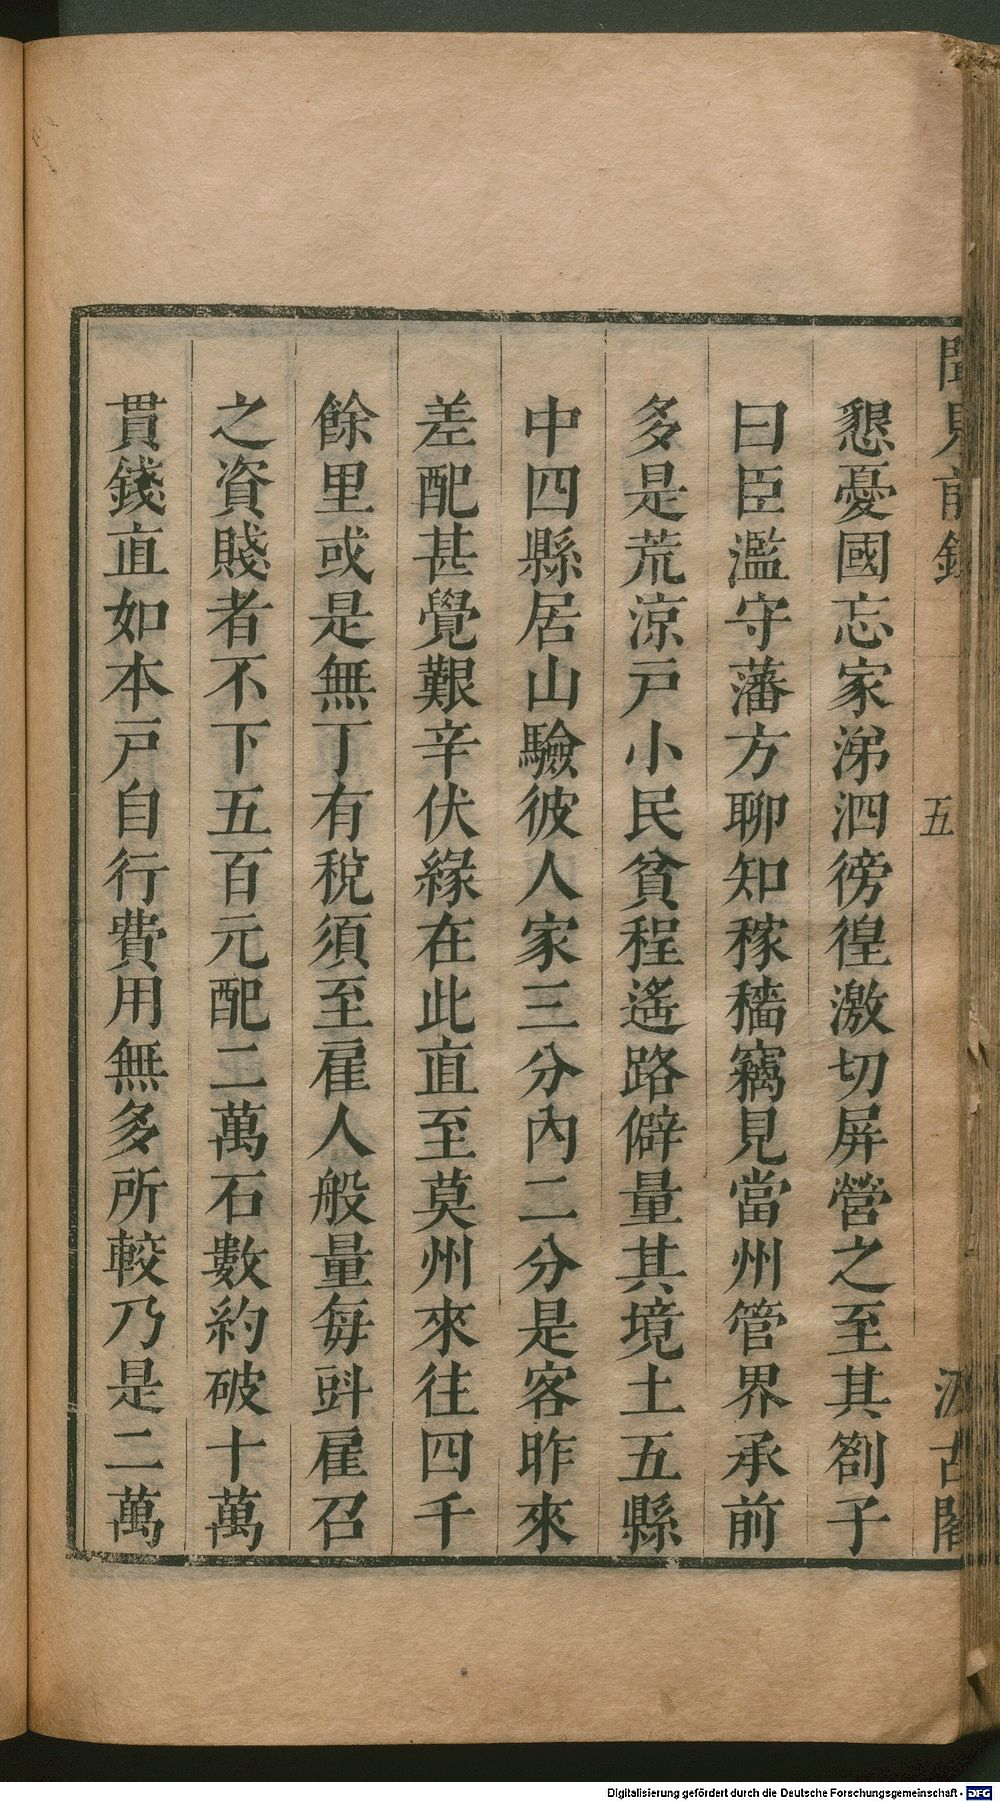 聞見前錄
五
汲古閣
懇憂國忘家涕泗徬徨激切屏營之至其劄子
曰臣濫守藩方聊知稼穡竊見當州管界承前
多是荒涼戸小民貧程遙路僻量其境土五縣
中四縣居山驗彼人家三分內二分是客昨來
差配甚覺艱辛伏緣在此直至莫州來往四千
餘里或是無丁有稅須至雇人般量每㪷雇召
之資賤者不下五百元配二萬石數約破十萬
貫錢直如本戸自行費用無多所較乃是二萬
Digitalisierung gefördert durch die Deutsche Forschungsgemeinschaft - DFG